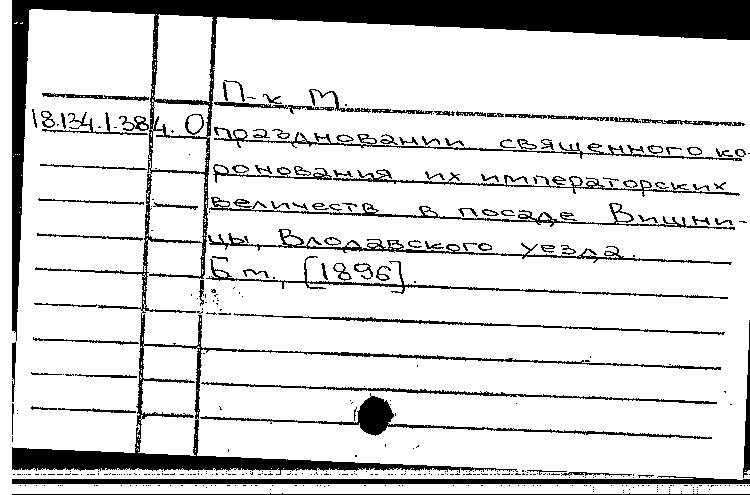 П-к, М.
18.134.1.384. О праздновании священного ко-
ронования их императорских
величеств в посаде Вишни-
цы, Влодавского уезда.
Б.м., [1896].